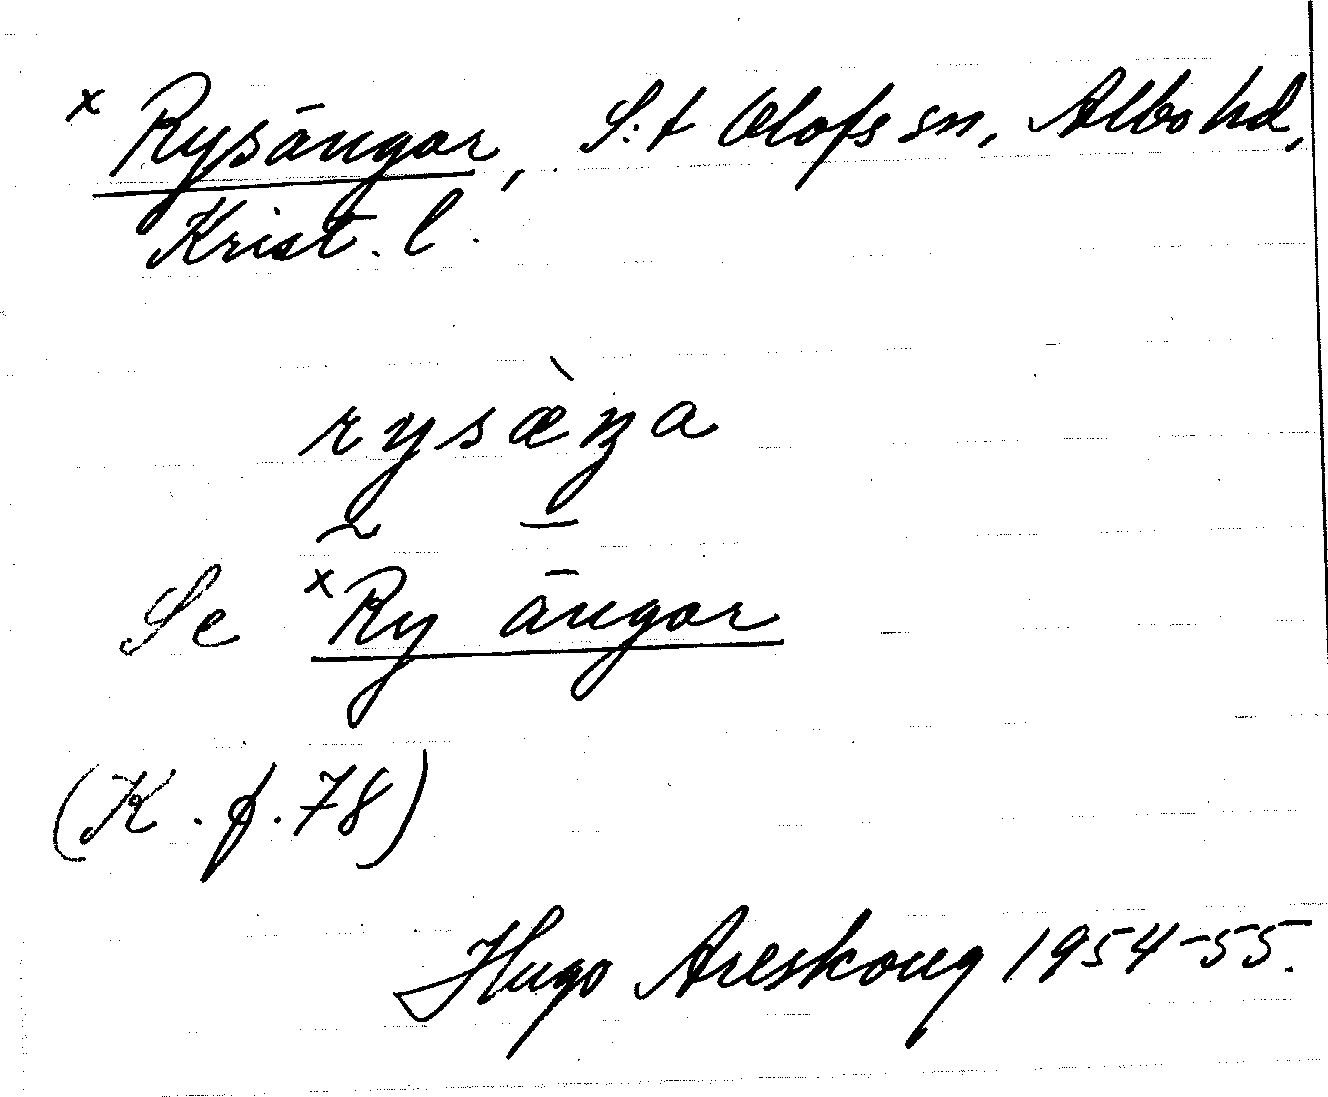 x Rysängar, S:t Olofs sn, Albo hd,
Krist. l.
rysæ̀ŋa
Se x Ry ängar
(K. f. 78)
Hugo Areskoug 1954-55.